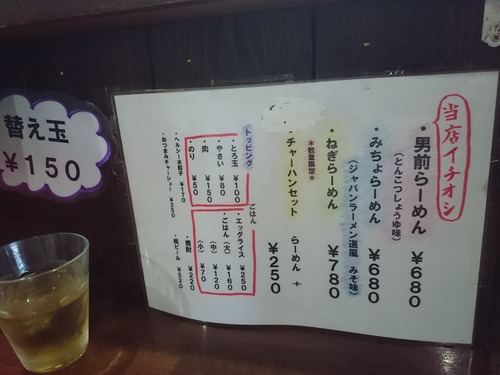 当店イチオシ
・男前らーめん ¥680
(とんこつしょうゆ味)
・みちょらーめん ¥680
(ジャパンラーメン道風 みそ味)
・ねぎらーめん ¥780
*数量限定*
・チャーハンセット らーめん + ¥250
トッピング
・とろ玉 ¥100
・やさい ¥80
・肉 ¥150
・のり ¥50
・ヘルシー水餃子 ¥170
・おつまみチャーシュー ¥250
ごはん
・エッグライス ¥250
・ごはん (大) ¥160
(中) ¥120
(小) ¥70
・焼酎 ¥220
・瓶ビール ¥520
替え玉
¥150